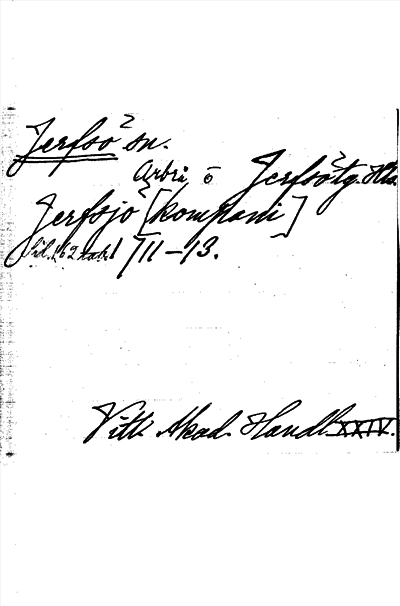 Jerfsö sn.
Arbrå o Jerfsö tg. Hls.
Jerfsjö [kompani]
Sid. 62 tab. 1711–13.
Vitt. Akad. Handl. XXIV.